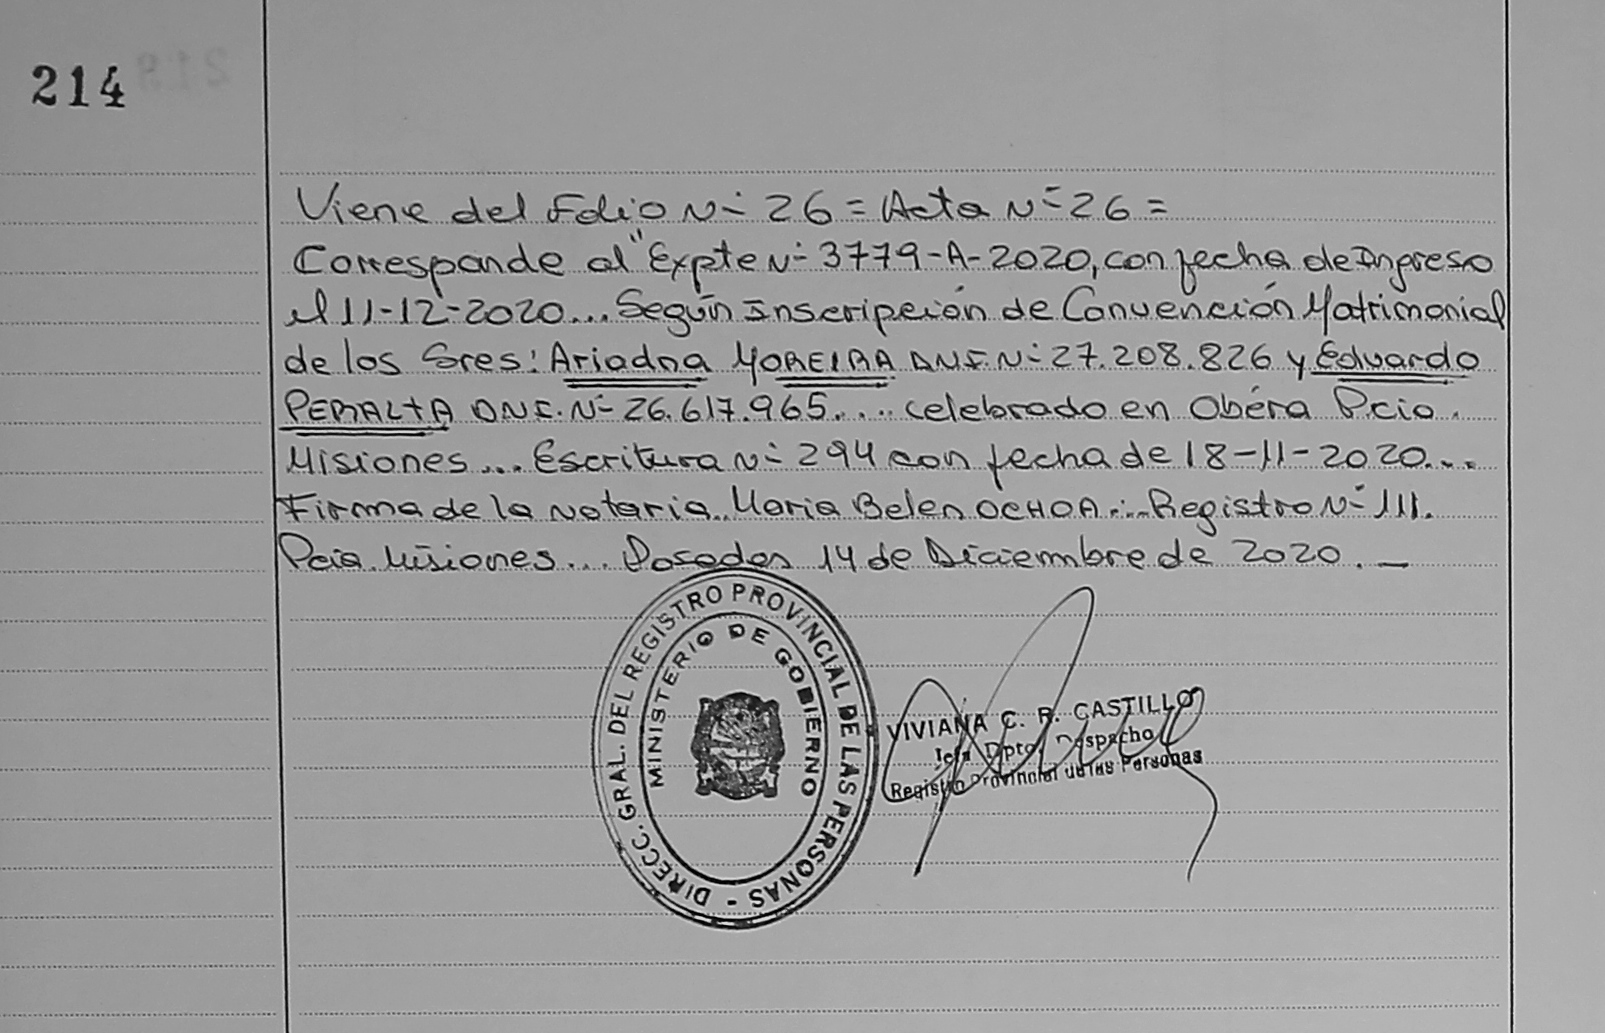 214
Viene del Folio N- 26 = Acta N- 26 =
Corresponde al "Expte N- 3779-A-2020, con fecha de Ingreso
el 11-12-2020... Según Inscripción de Convención Matrimonial
de los Sres: Ariadna MOREIRA D.N.I. N- 27.208.826 y Eduardo
PERALTA D.N.I. N- 26.617.965.... celebrado en Oberá Pcia.
Misiones... Escritura N- 294 con fecha de 18-11-2020...
Firma de la Notaria. Maria Belen OCHOA... Registro N- 111.
Pcia. Misiones... Posadas 14 de Diciembre de 2020. —
DIRECC. GRAL. DEL REGISTRO PROVINCIAL DE LAS PERSONAS -
MINISTERIO DE GOBIERNO
VIVIANA C. R. CASTILLO
Jefa Dpto. Despacho
Registro Provincial de las Personas